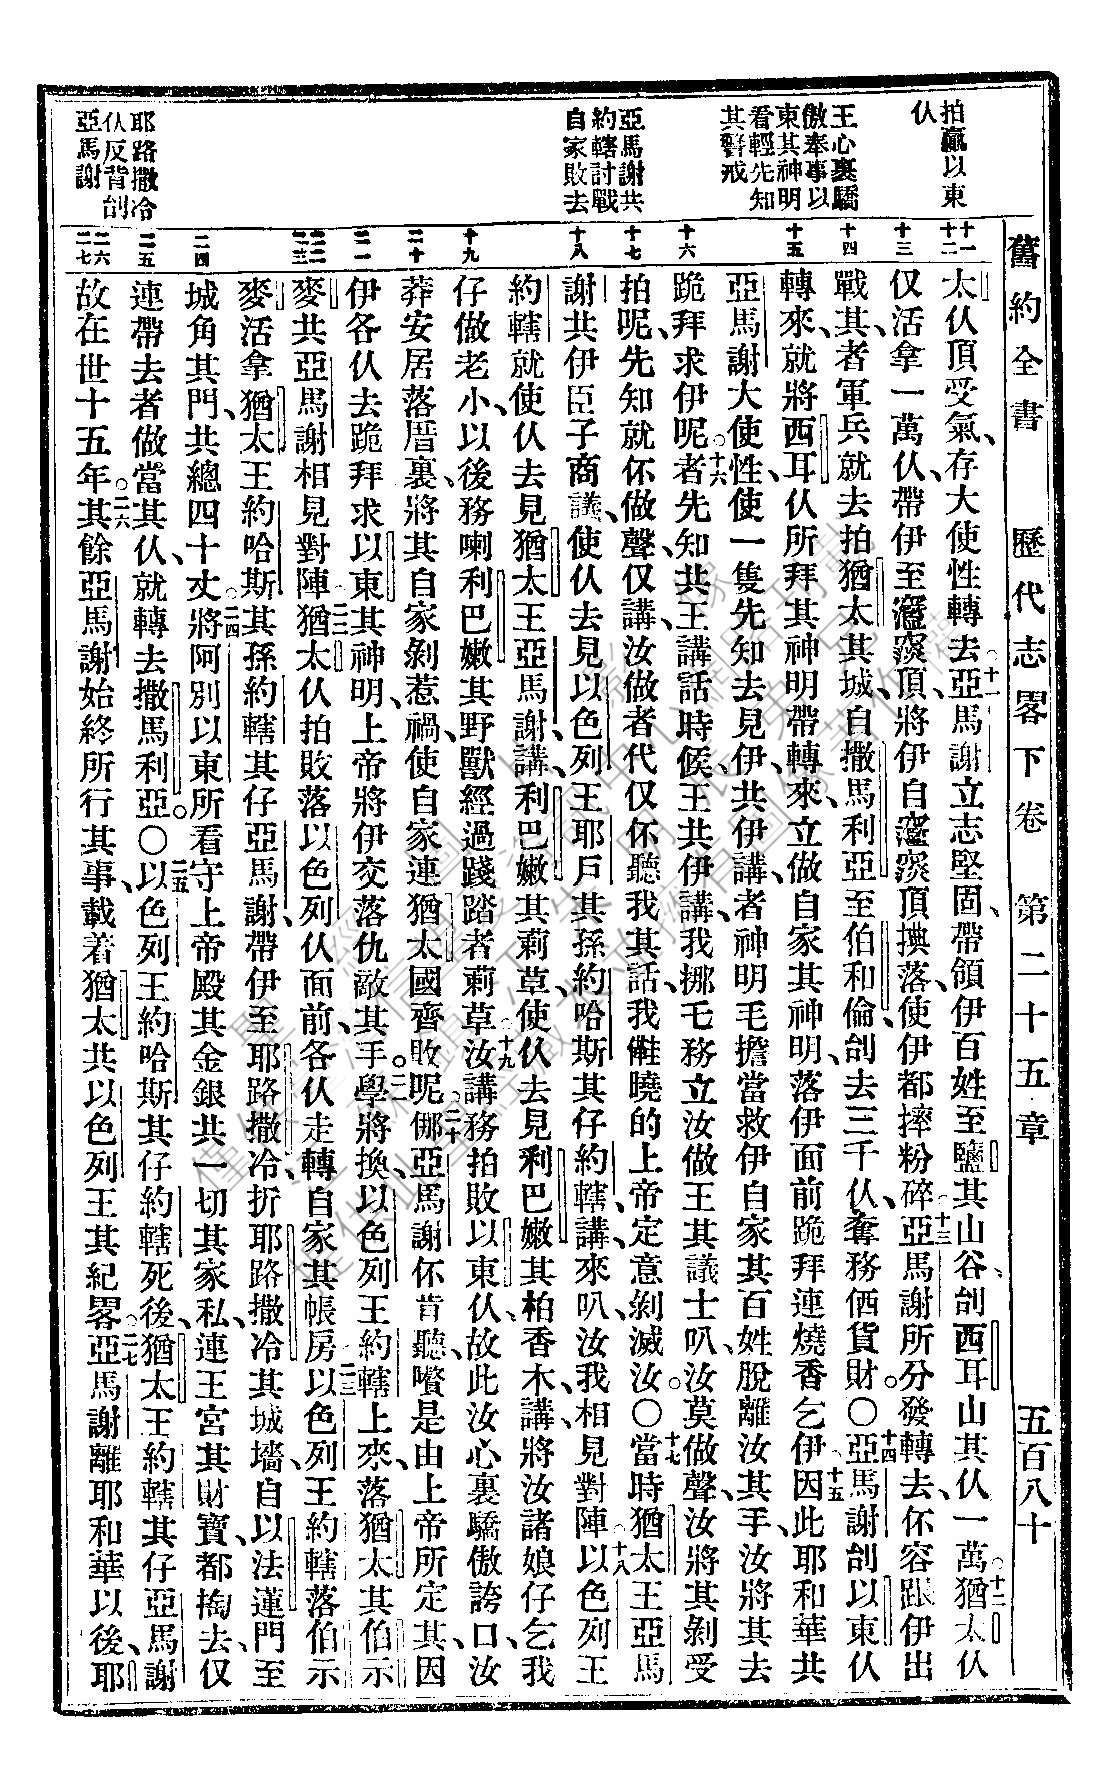 舊約全書　歷代志畧下卷　第二十五章　五百八十
拍贏以東
仈
王心裏驕
傲奉事以
東其神明
看輕先知
其警戒
亞馬謝共
約轄討戰
自家敗去
耶路撒冷
仈反背刣
亞馬謝
十一
十二
十三
十四
十五
十六
十七
十八
十九
二十
二一
二二
二三
二四
二五
二六
二七
太仈頂受氣、存大使性轉去。十一亞馬謝立志堅固、帶領伊百姓至鹽其山谷、刣西耳山其仈一萬。十二猶太仈
仅活拿一萬仈、帶伊至頂、將伊自頂㨻落、使伊都摔粉碎。十三亞馬謝所分發轉去、伓容跟伊出
戰其、者軍兵就去拍猶太其城、自撒馬利亞至伯和倫、刣去三千仈、奪務価貨財。〇十四亞馬謝刣以東仈
轉來、就將西耳仈所拜其神明帶轉來、立做自家其神明、落伊面前跪拜連燒香乞伊。十五因此耶和華共
亞馬謝大使性、使一隻先知去見伊、共伊講、者神明毛擔當救伊自家其百姓脫離汝其手、汝將其去
跪拜求伊呢。十六者先知共王講話時候、王共伊講、我挪毛務立汝做王其議士叭、汝莫做聲、汝將其剝受
拍呢、先知就伓做聲、仅講、汝做者代、仅伓聽我其話、我曉的上帝定意剝滅汝。〇十七當時猶太王亞馬
謝共伊臣子商議、使仈去見以色列王耶戶其孫約哈斯其仔約轄、講、來叭、汝我相見對陣。十八以色列王
約轄就使仈去見猶太王亞馬謝、講、利巴嫩其莿草、使仈去見利巴嫩其柏香木、講、將汝諸娘仔乞我
仔做老小、以後務喇利巴嫩其野獸經過踐踏者莿草。十九汝講務拍敗以東仈、故此汝心裏驕傲誇口、汝
莽安居落厝裏、將其自家剝惹禍、使自家連猶太國齊敗呢。二十倻亞馬謝伓肯聽嘴、是由上帝所定其、因
伊各仈去跪拜求以東其神明、上帝將伊交落仇敵其手。二一學將換以色列王約轄上來、落猶太其伯示
麥、共亞馬謝相見對陣。二二猶太仈拍敗落以色列仈面前、各仈走轉自家其帳房。二三以色列王約轄落伯示
麥活拿猶太王約哈斯其孫約轄其仔亞馬謝、帶伊至耶路撒冷、折耶路撒冷其城墻、自以法蓮門至
城角其門、共總四十丈。二四將阿別以東所看守上帝殿其金銀、共一切其家私、連王宮其財寶、都掏去、仅
連帶去者做當其仈、就轉去撒馬利亞。〇二五以色列王約哈斯其仔約轄死後、猶太王約轄其仔亞馬謝
故在世十五年。二六其餘亞馬謝始終所行其事、載着猶太共以色列王其紀畧。二七亞馬謝離耶和華以後、耶